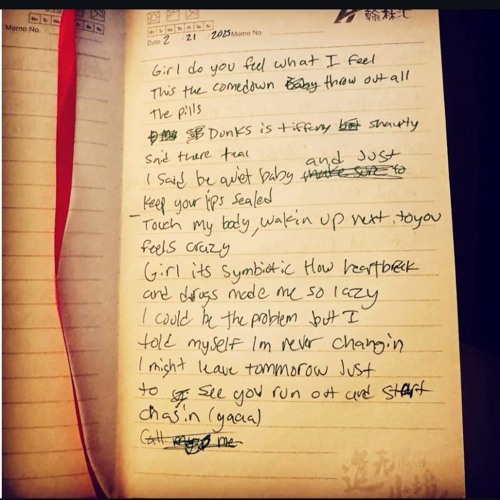 Memo No.
Date 2 21 2025 Memo No
翰林汇
Girl do you feel what I feel
This the comedown Baby throw out all
The pills
Dunks is tiffany but shawty
Said there teal
and Just
I said be quiet baby make sure to
keep your lips sealed
Touch my body, wakin up next to you
feels crazy
Girl its symbiotic How heartbreak
and drugs made me so lazy
I could be the problem but I
told myself Im never changin
I might leave tommorow Just
to see you run out and start
chas'n (yaaa)
Call me